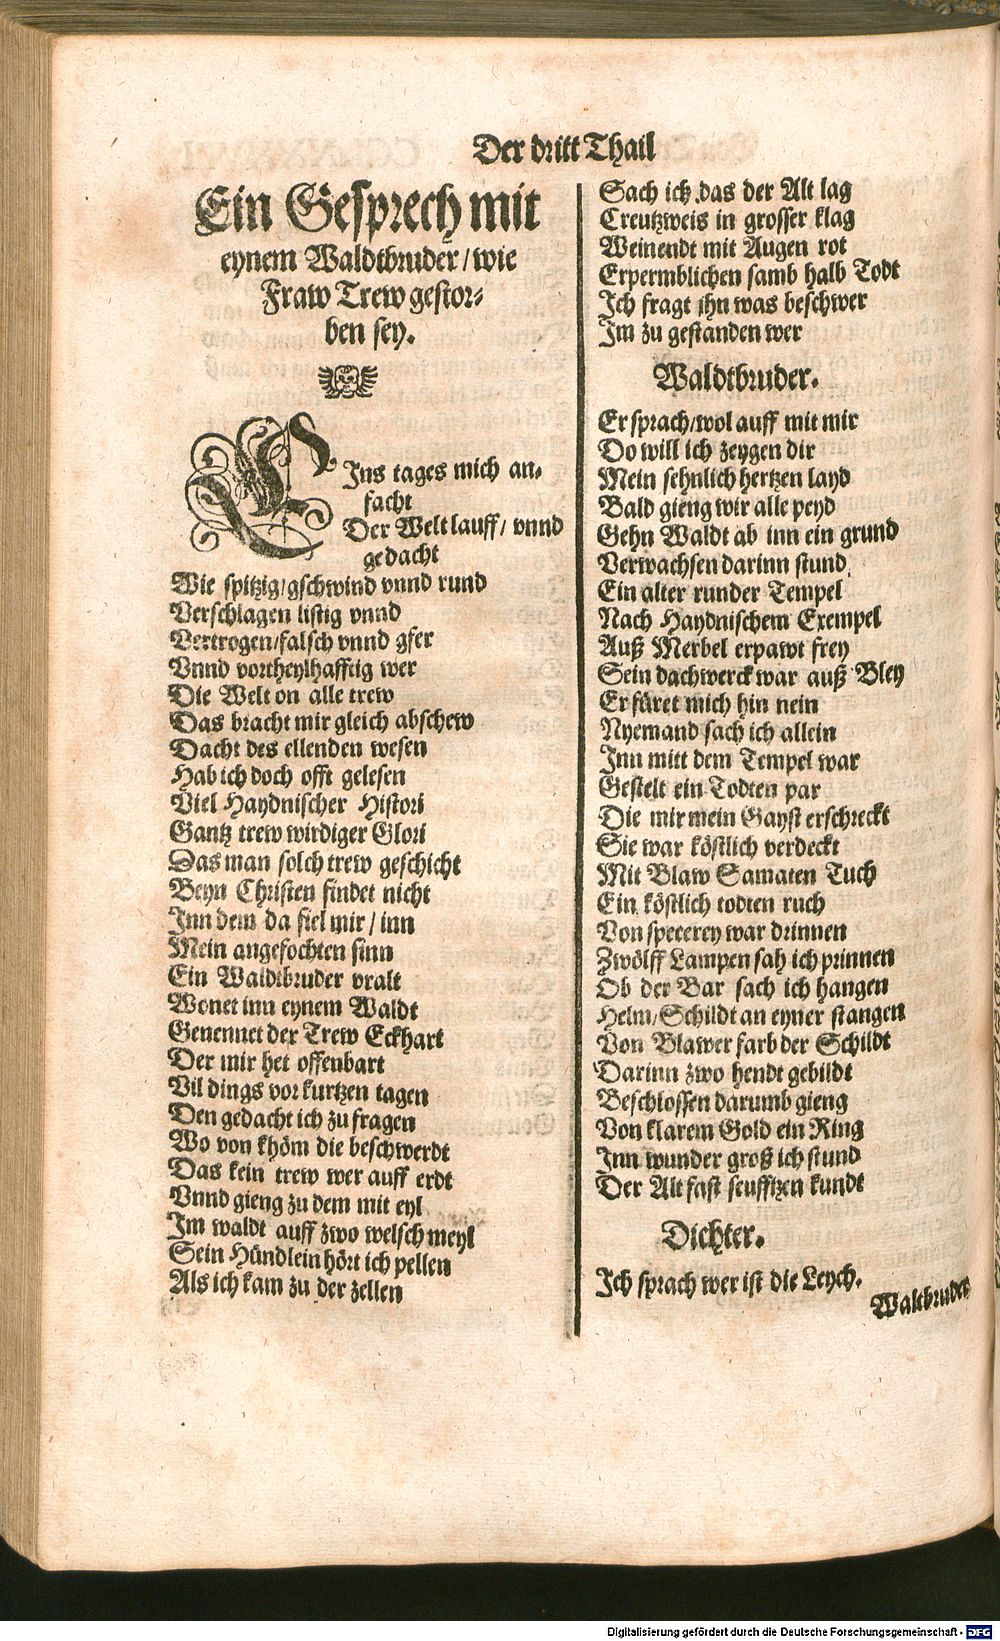 Der dritt Thail
Ein Gesprech mit
eynem Waldtbruder / wie
Fraw Trew gestor-
ben sey.
EIns tages mich an-
facht
Der Welt lauff / vnnd
gedacht
Wie spitzig / gschwind vnnd rund
Verschlagen listig vnnd
Vertrogen / falsch vnnd gfer
Vnnd vortheylhafftig wer
Die Welt on alle trew
Das bracht mir gleich abschew
Dacht des ellenden wesen
Hab ich doch offt gelesen
Viel Haydnischer Histori
Gantz trew wirdiger Glori
Das man solch trew geschicht
Beyn Christen findet nicht
Inn dem da fiel mir / inn
Mein angefochten sinn
Ein Waldtbruder vralt
Wonet inn eynem Waldt
Genennet der Trew Eckhart
Der mir het offenbart
Vil dings vor kurtzen tagen
Den gedacht ich zu fragen
Wo von khöm die beschwerdt
Das kein trew wer auff erdt
Vnnd gieng zu dem mit eyl
Im waldt auff zwo welsch meyl
Sein Hündlein hört ich pellen
Als ich kam zu der zellen
Sach ich das der Alt lag
Creutzweis in grosser klag
Weinendt mit Augen rot
Erpermblichen samb halb Todt
Ich fragt ihn was beschwer
Im zu gestanden wer
Waldtbruder.
Er sprach / wol auff mit mir
Do will ich zeygen dir
Mein sehnlich hertzen layd
Bald gieng wir alle peyd
Gehn Waldt ab inn ein grund
Verwachsen darinn stund
Ein alter runder Tempel
Nach Haydnischem Exempel
Auß Merbel erpawt frey
Sein dachwerck war auß Bley
Er füret mich hin nein
Nyemand sach ich allein
Inn mitt dem Tempel war
Gestelt ein Todten par
Die mir mein Gayst erschreckt
Sie war köstlich verdeckt
Mit Blaw Samaten Tuch
Ein köstlich todten ruch
Von specerey war drinnen
Zwölff Lampen sah ich prinnen
Ob der Bar sach ich hangen
Helm / Schildt an eyner stangen
Von Blawer farb der Schildt
Darinn zwo hendt gebildt
Beschlossen darumb gieng
Von klarem Gold ein Ring
Inn wunder groß ich stund
Der Alt fast seufftzen kundt
Dichter.
Ich sprach wer ist die Leych.
Waltbruder
Digitalisierung gefördert durch die Deutsche Forschungsgemeinschaft - DFG